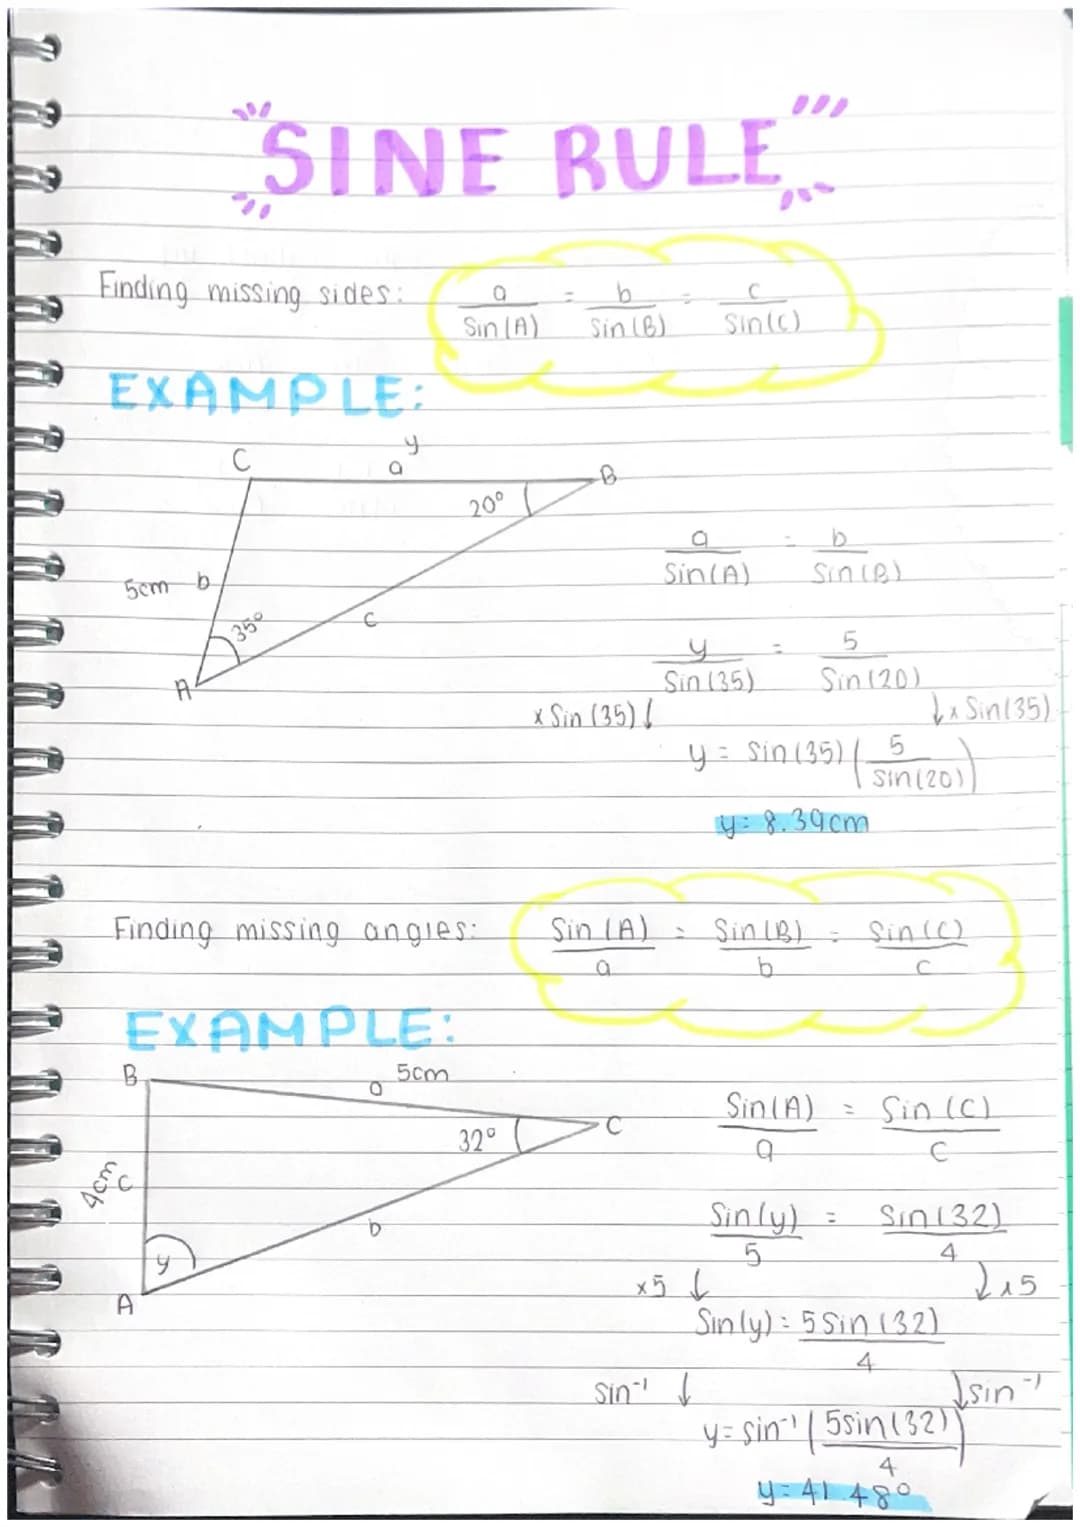 SINE RULE
Finding missing sides: a/Sin(A) = b/Sin(B) = c/Sin(C)
EXAMPLE:
y
C a B
20°
5cm b
35° c
A
a/Sin(A) = b/Sin(B)
y/Sin(35) = 5/Sin(20)
x Sin(35)↓ ↓x Sin(35)
y = Sin(35)(5/Sin(20))
y = 8.39cm
Finding missing angles: Sin(A)/a = Sin(B)/b = Sin(C)/c
EXAMPLE:
B a 5cm
32° C
4cm c
b
y
A
Sin(A)/a = Sin(C)/c
Sin(y)/5 = Sin(32)/4
x5 ↓ ↓ x5
Sin(y) = 5Sin(32)/4
sin⁻¹ ↓ ↓ sin⁻¹
y = sin⁻¹(5sin(32)/4)
y = 41.48°